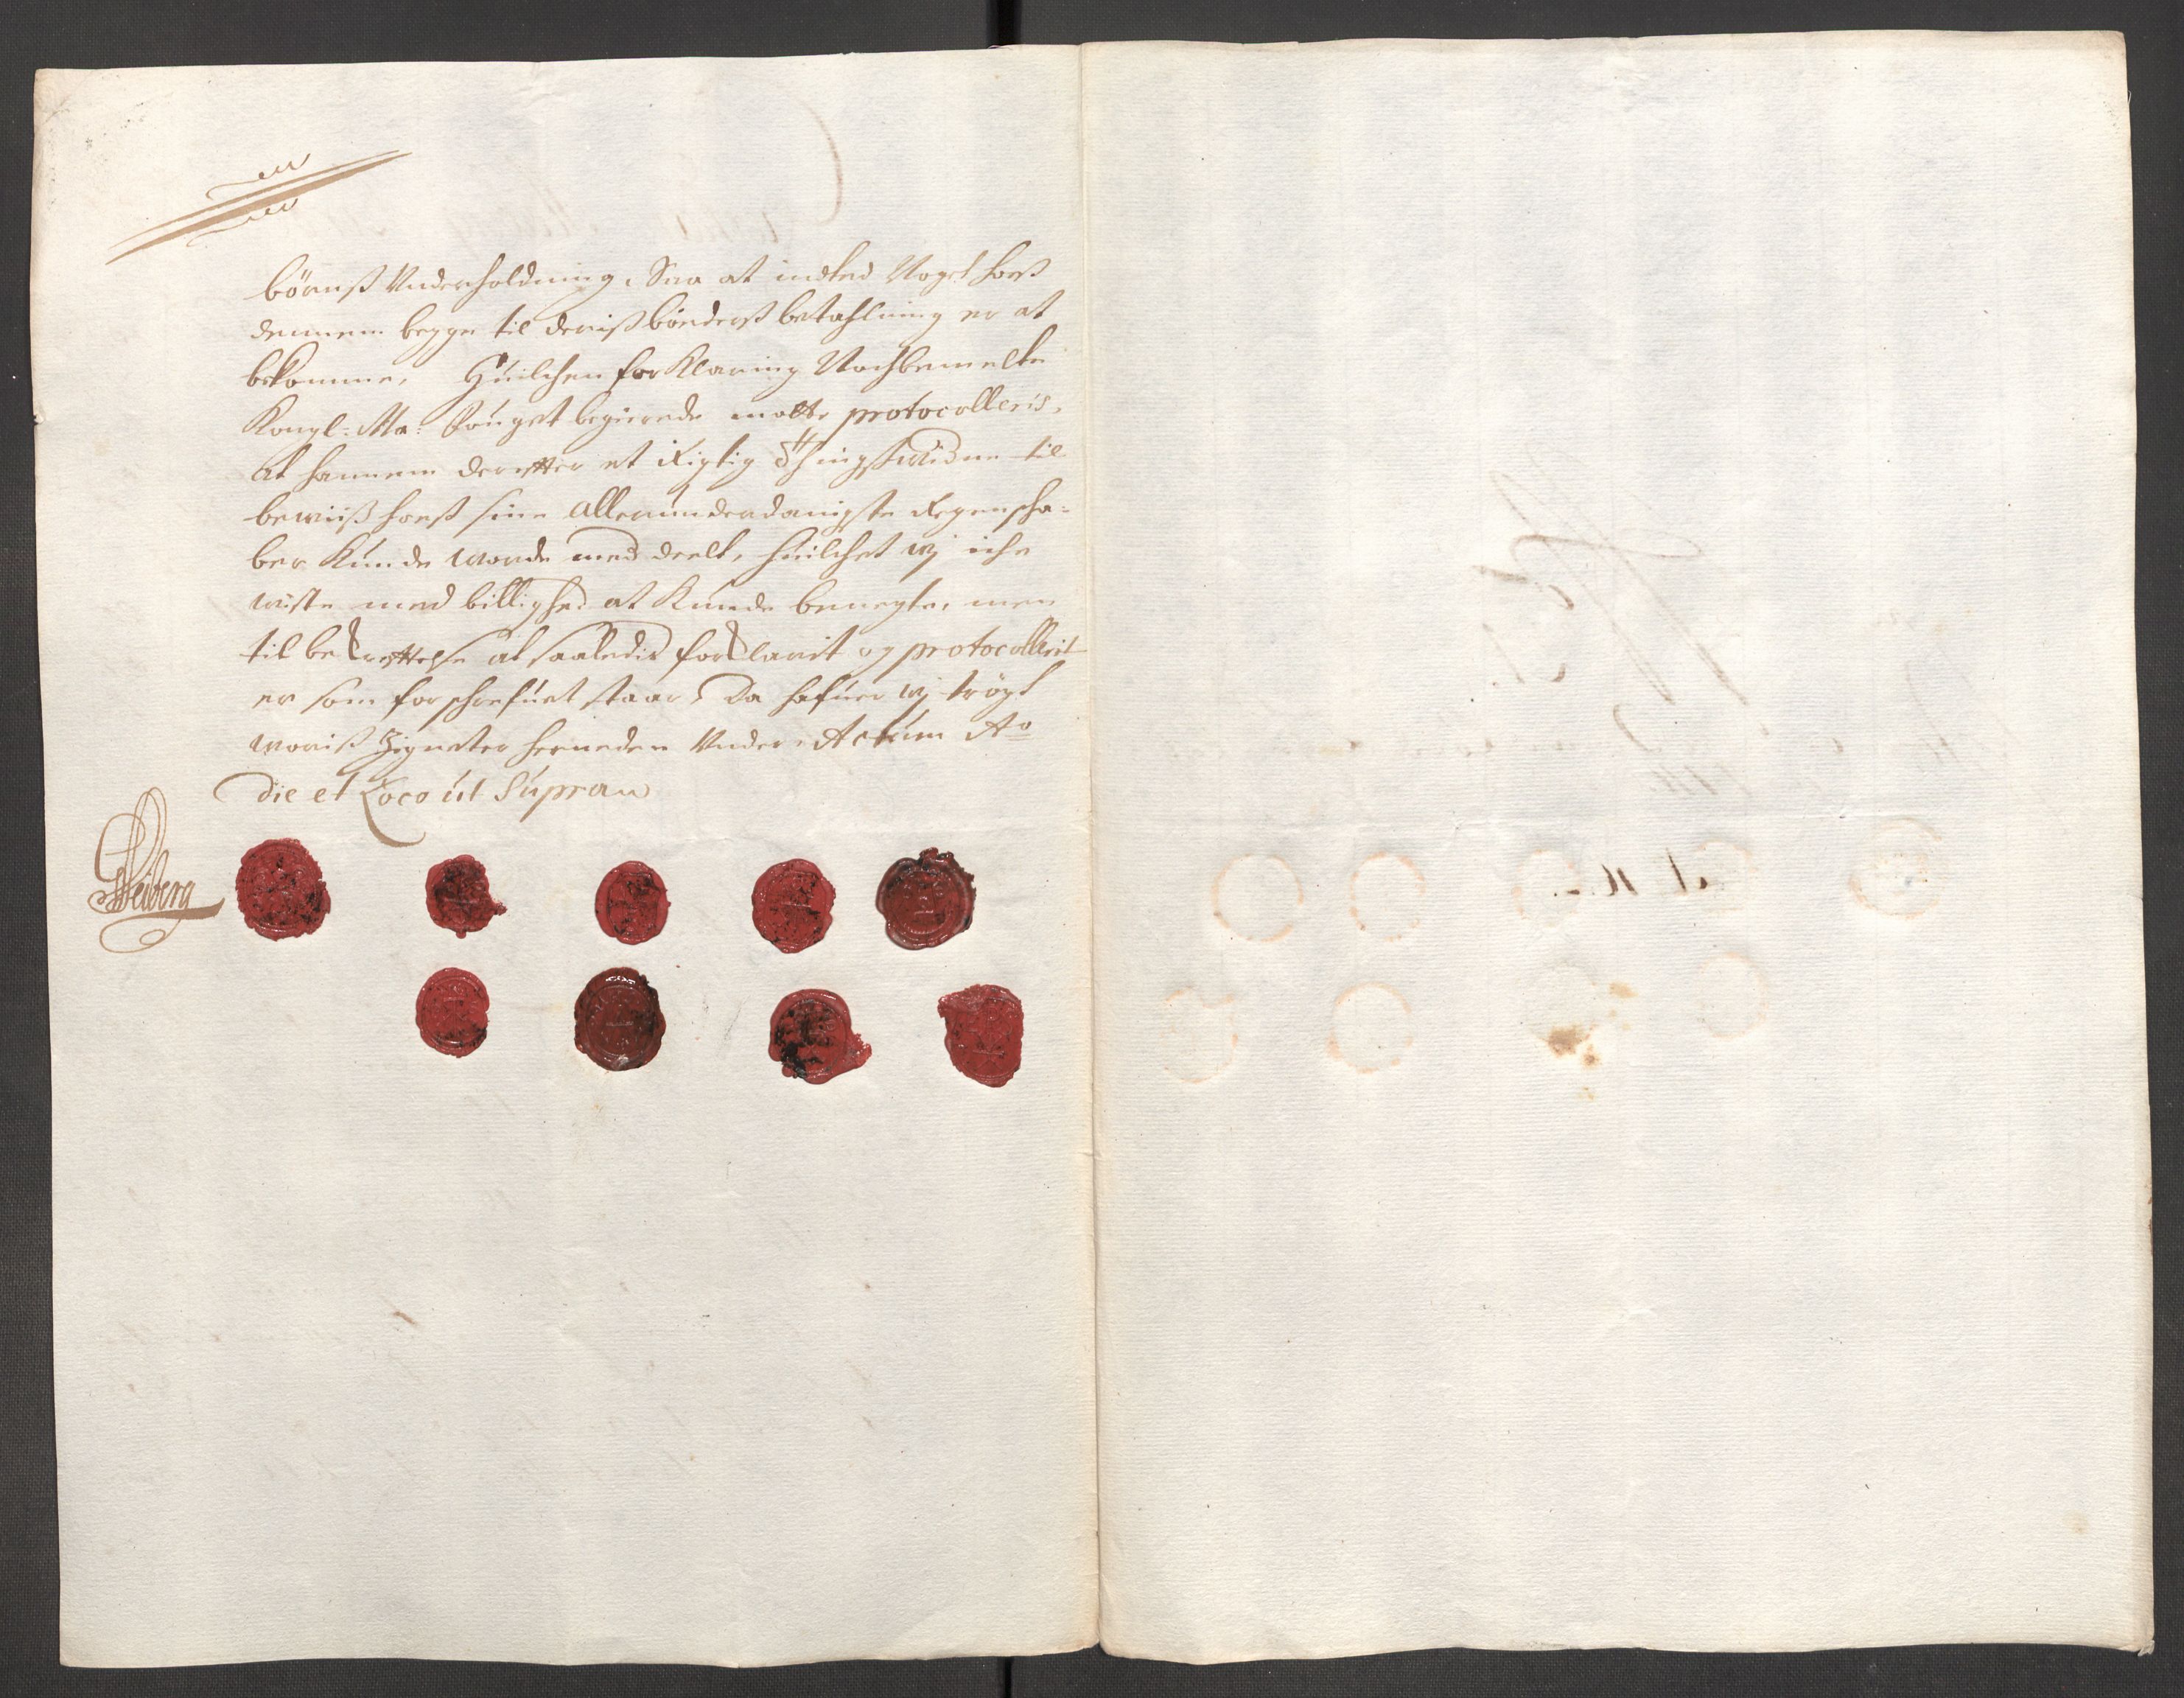 börnß Underholdning, Saa at indted Noget hoeß
dennem begge til deriß bönderß betahlning er at
bekomme, Huilchen forKlaring Velbemelte
Kongl: Ma: Fougt begierede motte protocolleris,
At hannem derefter et Rigtig Thingßwidne til
bewiiß hoeß sine Allerunderdanigste Regenscha-
ber Kunde worde med deelt, huilchet wj iche
wiste med billighed at Kunde benegte, men
til bekreftelse at saaledis forklarit og protocollerit
er som forschrefuet staar, Da hafuer wj trögt
woriß Zigneter herneden Under. Actum Ao
die et Loco ut Supra